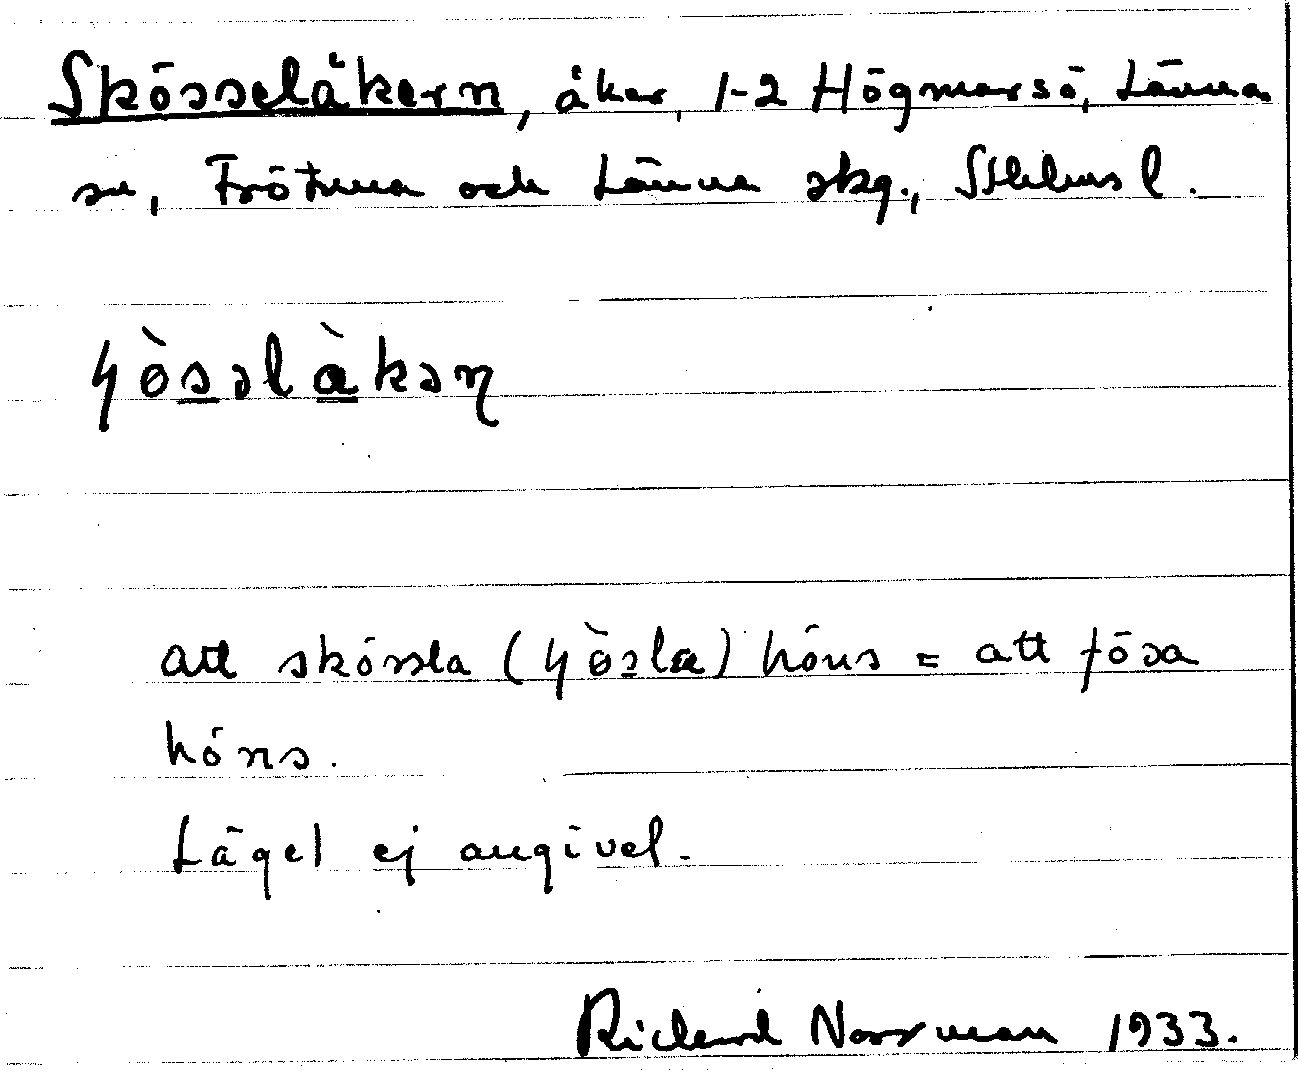 Skösselåkern, åker, 1-2 Högmarsö, Länna
sn, Frötuna och Länna skg., Sthlms l.
ɥös̲əlà̲kəɳ
att skössla (ɥös̲la) höns = att fösa
höns.
Läget ej angivet.
Richard Norrman 1933.